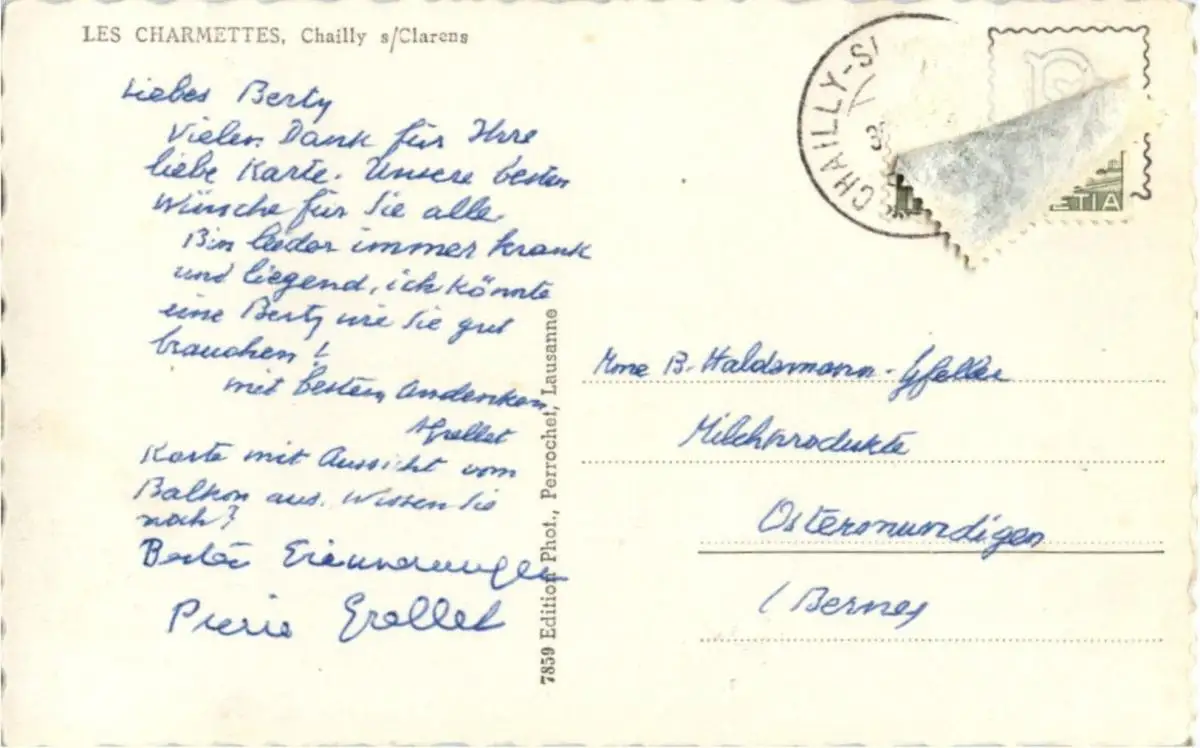 LES CHARMETTES, Chailly s/Clarens
Liebes Berty
Vielen Dank für Ihre
liebe Karte. Unsere besten
Wünsche für Sie alle.
Bin leider immer krank
und liegend, ich könnte
eine Berty wie Sie gut
brauchen!
mit besten Andenken
Grellet
Karte mit Aussicht vom
Balkon aus. Wissen Sie
noch?
Beste Erinnerungen
Pierre Grellet
7859 Edition Phot., Perrochet, Lausanne
CHAILLY-S
ETIA
Mme B. Haldemann-Gfeller
Milchprodukte
Ostermundigen
(Bernes